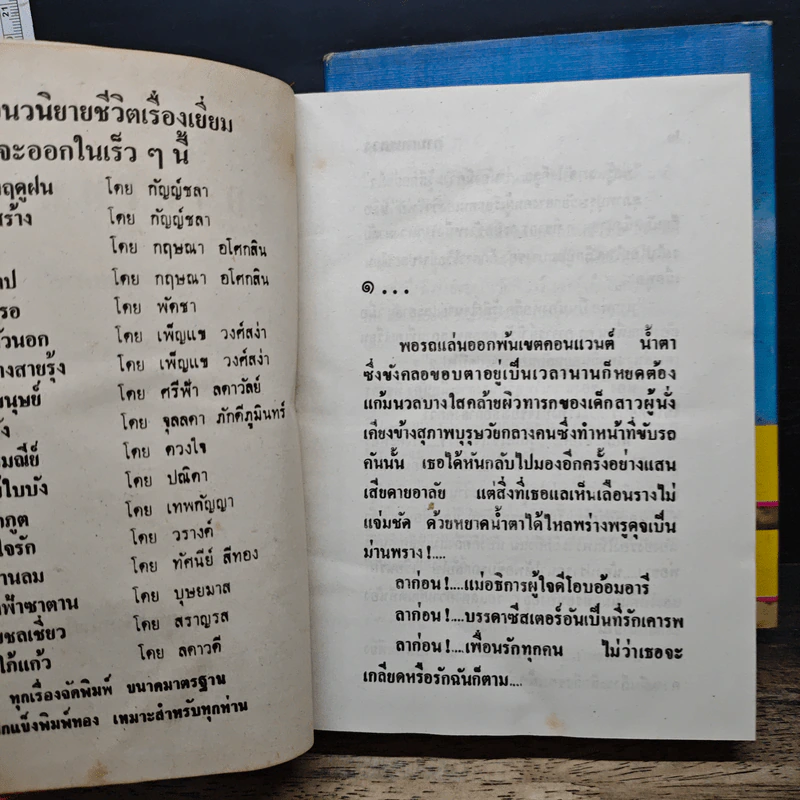 นวนิยายชีวิตเรื่องเยี่ยม
จะออกในเร็ว ๆ นี้
ฤดูฝน โดย กัญญ์ชลา
สร้าง โดย กัญญ์ชลา
โดย กฤษณา อโศกสิน
โดย กฤษณา อโศกสิน
รอ โดย พัดชา
วนอก โดย เพ็ญแข วงศ์สง่า
างสายรุ้ง โดย เพ็ญแข วงศ์สง่า
นุษย์ โดย ศรีฟ้า ลดาวัลย์
โดย จุลลดา ภักดีภูมินทร์
มณีย์ โดย ดวงใจ
ใบบัง โดย ปณิดา
ภูต โดย เทพกัญญา
ใจรัก โดย วรางค์
านลม โดย ทัศนีย์ สีทอง
ฟ้าซาตาน โดย บุษยมาส
ชลเชี่ยว โดย สราญรส
ไก้แก้ว โดย ลดาวดี
ทุกเรื่องจัดพิมพ์ ขนาดมาตรฐาน
กแข็งพิมพ์ทอง เหมาะสำหรับทุกท่าน
๑...
พอรถแล่นออกพ้นเขตคอนแวนต์ น้ำตา
ซึ่งขังคลอขอบตาอยู่เป็นเวลานานก็หยดต้อง
แก้มนวลบางใสคล้ายผิวทารกของเด็กสาวผู้นั่ง
เคียงข้างสุภาพบุรุษวัยกลางคนซึ่งทำหน้าที่ขับรถ
คันนั้น เธอได้หันกลับไปมองอีกครั้งอย่างแสน
เสียดายอาลัย แต่สิ่งที่เธอแลเห็นเลือนรางไม่
แจ่มชัด ด้วยหยาดน้ำตาได้ไหลพร่างพรูดุจเป็น
ม่านพราง!....
ลาก่อน!....แม่อธิการผู้ใจดีโอบอ้อมอารี
ลาก่อน!....บรรดาซีสเตอร์อันเป็นที่รักเคารพ
ลาก่อน!....เพื่อนรักทุกคน ไม่ว่าเธอจะ
เกลียดหรือรักฉันก็ตาม....